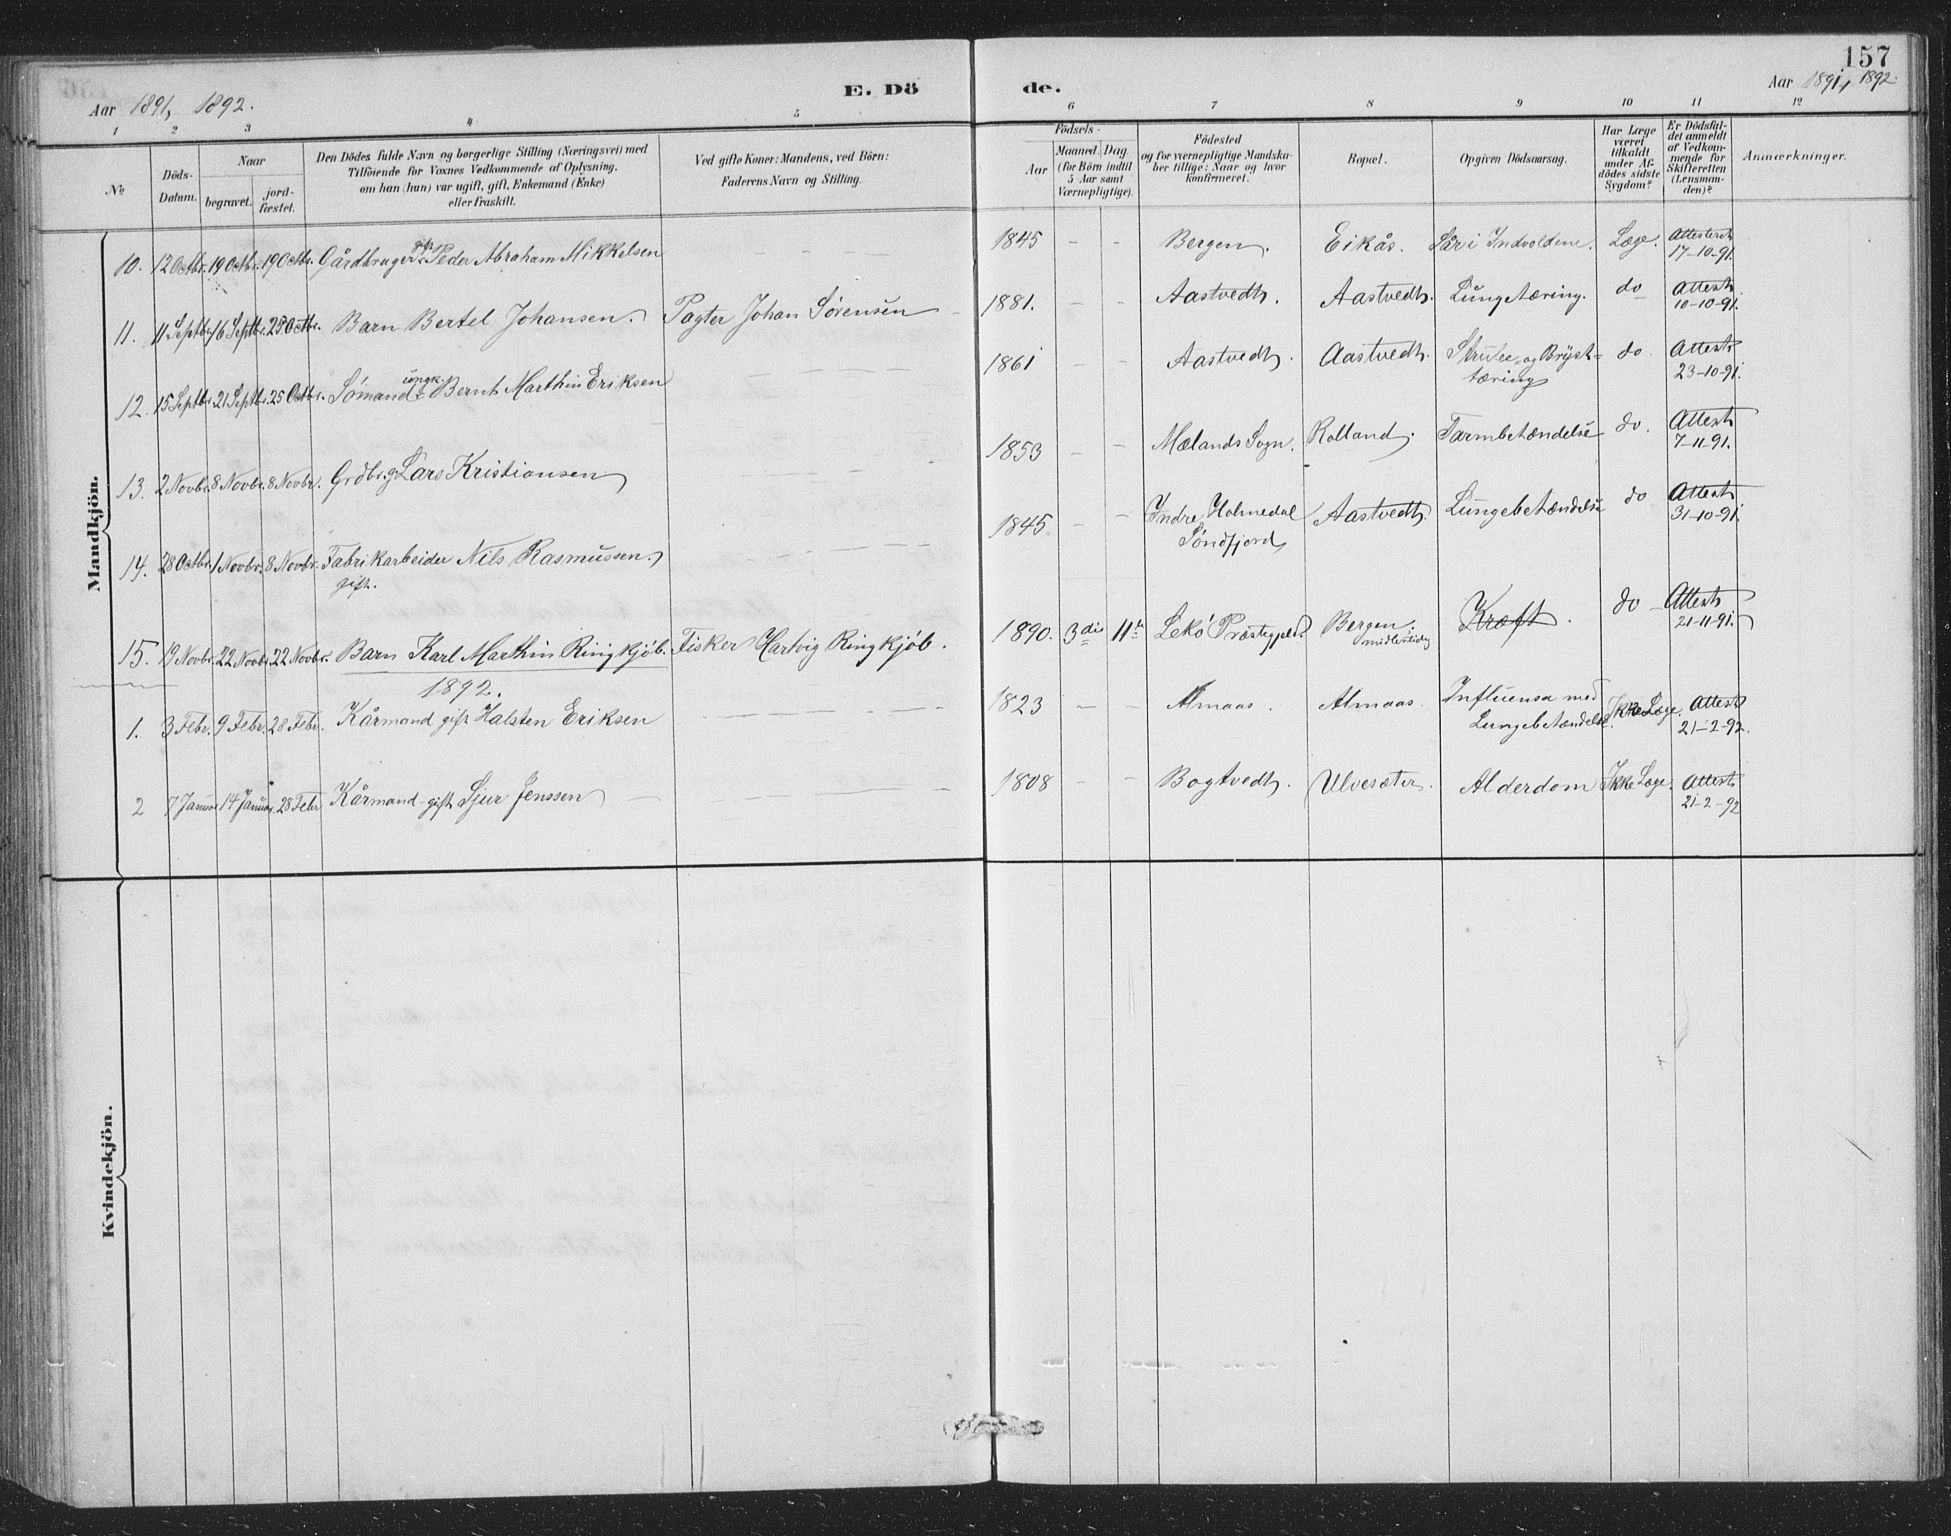 157
Aar 1891, 1892.
E. Dö
de.
Aar 1891, 1892.
1 2 3 4 5 6 7 8 9 10 11 12
No
Döds-
Datum.
Naar
begravet.
jord-
fæstet.
Den Dödes fulde Navn og borgerlige Stilling (Næringsvei) med
Tilföiende for Voxnes Vedkommende af Oplysning.
om han (hun) var ugift, gift, Enkemand (Enke)
eller fraskilt.
Ved gifte Koner: Mandens, ved Börn:
Faderens Navn og Stilling.
Födsels-
Aar
Maaned. Dag.
(for Börn indtil
5 Aar samt
Værnepligtige).
Födested
og for værnepligtige Mandska-
ber tillige: Naar og hvor
konfirmeret.
Bopæl.
Opgiven Dödsaarsag.
Har Læge
været
tilkaldt
under Af-
dödes sidste
Sygdom?
Er Dödsfal-
det anmeldt
af Vedkom-
mende for
Skifteretten
(Lensman-
den)?
Anmærkninger.
Mandkjön.
10. 12 Octbr. 19 Octbr. 19 Octbr. Gårdbruger gift Peder Abraham Mikkelsen — 1845 — — Bergen. Eikås. Sår i Indvoldene. Læge. Attesterst
17-10-91.
11. 11 Septbr. 16 Septbr. 25 Octbr. Barn Bertel Johansen. Pagter Johan Sörensen 1881. — — Aastvedt. Aastvedt. Lungetæring. do Attest
10-10-91.
12. 15 Septbr. 21 Septbr. 25 Octbr. Sömand ungk. Bernt Marthin Eriksen — 1861 — — Aastvedt. Aastvedt. Strube og Bryst-
tæring do. Attest
23-10-91.
13. 2 Novbr. 8 Novbr. 8 Novbr. Grdbr. g. Lars Kristiansen — 1853 — Mælands Sogn. Rolland. Tarmbetændelse do. Attest
7-11-91.
14. 28 Octbr. 1 Novbr. 8 Novbr. Fabrikarbeider Nils Rasmussen.
gift. — 1845 — — Indre Holmedal
Söndfjord Aastvedt. Lungebetændelse do Attest
31-10-91.
15. 19 Novbr. 22 Novbr. 22 Novbr. Barn Karl Marthin Ringkjöb. Fisker Hartvig Ringkjöb. 1890. 3die 11te Lekö Præstegjeld. Bergen.
midlertidig Kræft. do — Attest
21-11-91.
1892.
1. 3 Febr. 9 Febr. 28 Febr. Kårmand gift Halsten Eriksen — 1823 — — Almaas. Almaas. Influensa med
Lungebetændelse. Ikke Læge. Attest
21-2-92.
2 7 Januar 14 Januar. 28 Febr. Kårmand gift Sjur Jenssen — 1808 — — Bogtvedt. Ulvesæter. Alderdom Ikke Læge. Attest
21-2-92
Kvindekjön.